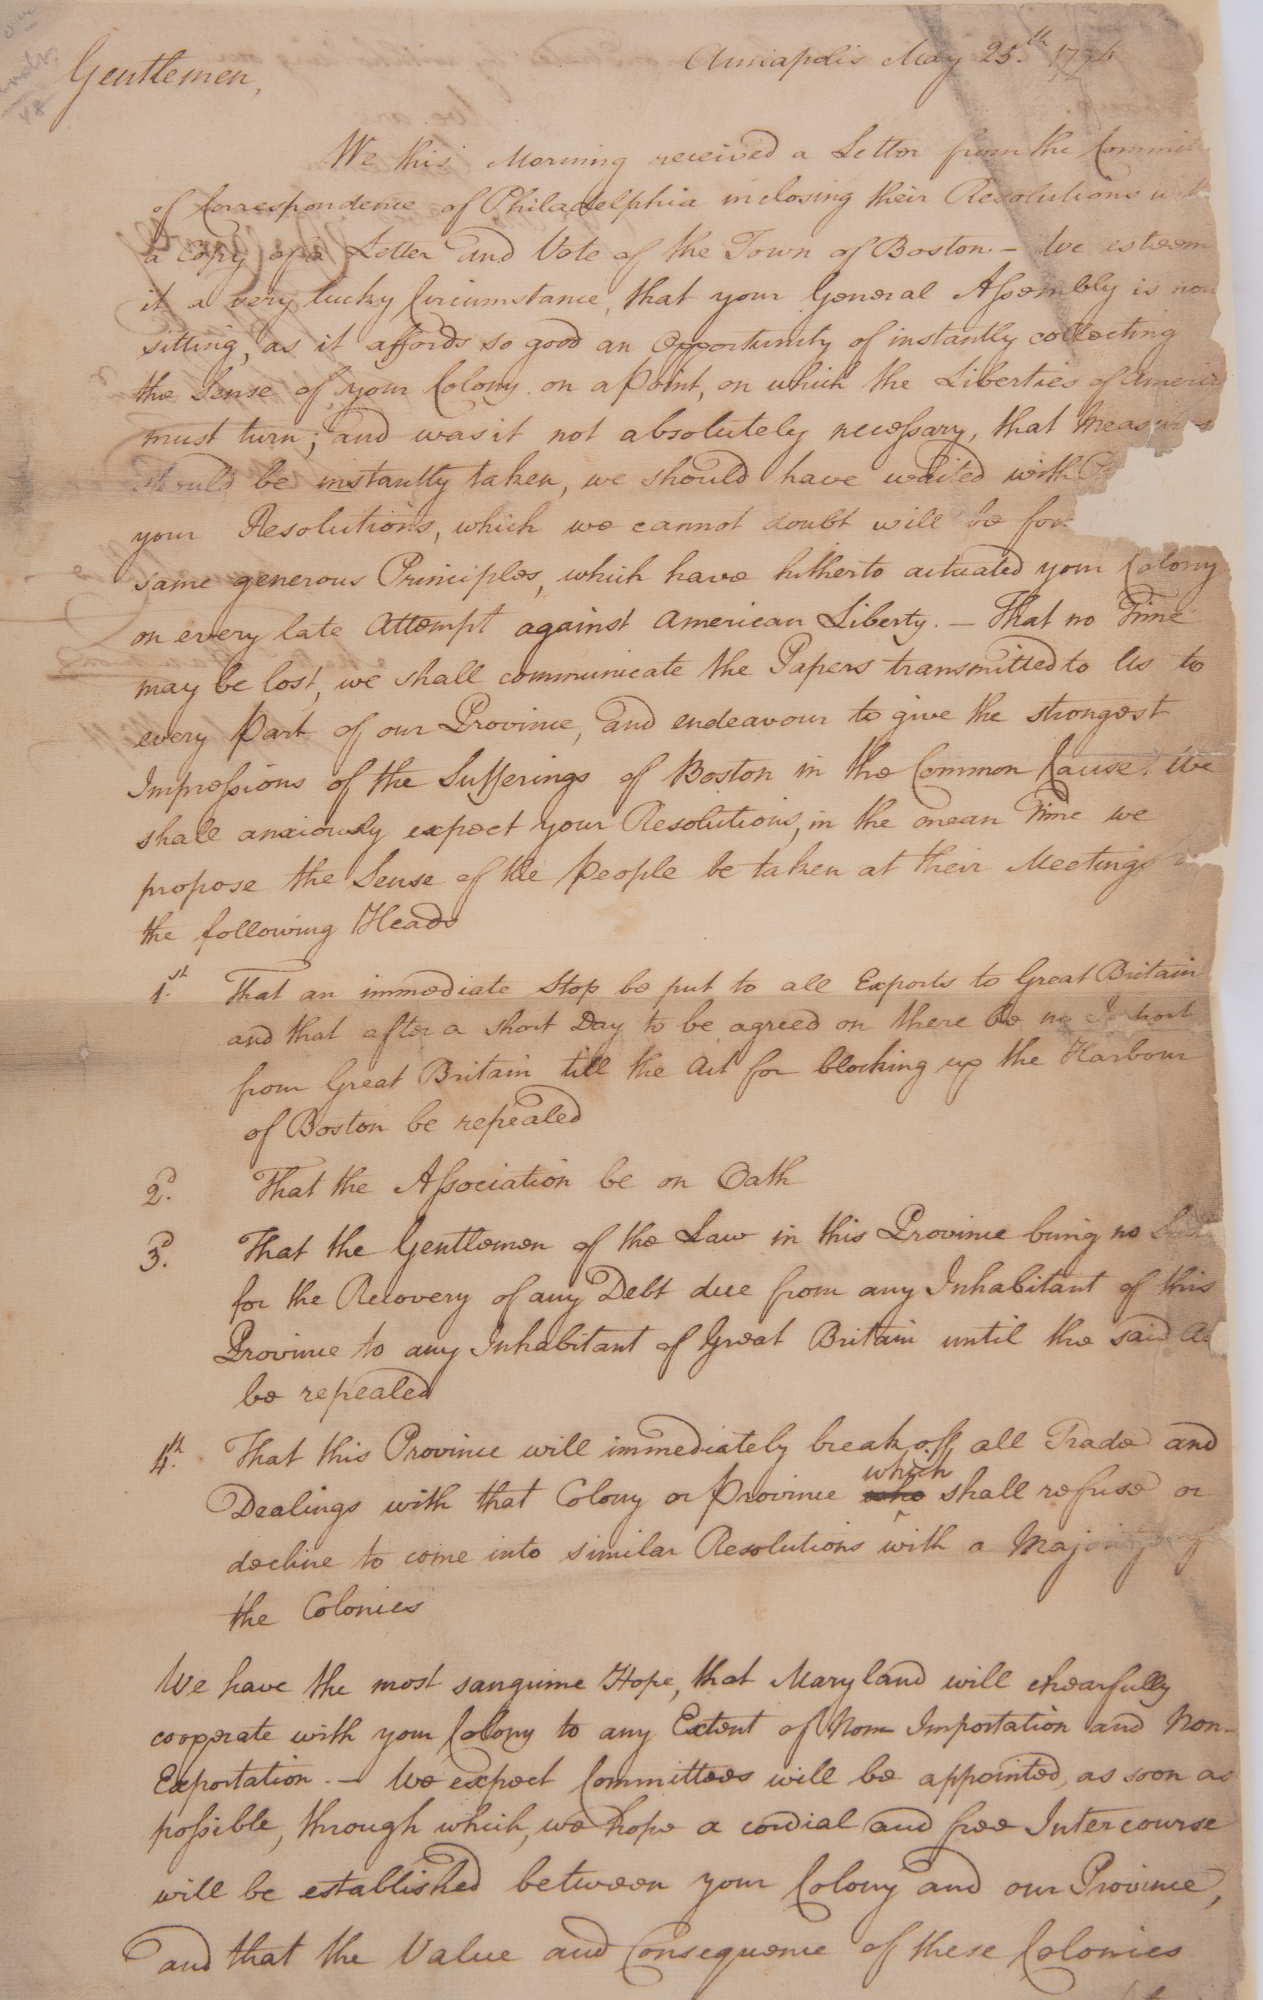 Annapolis May 25.th 1774
Gentlemen,
We this Morning received a Letter from the Commit
of Correspondence of Philadelphia inclosing their Resolutions
a Copy of a Letter and Vote of the Town of Boston. — We esteem
it a very lucky Circumstance, that your General Assembly is now
sitting, as it affords so good an Opportunity of instantly collecting
the Sense of your Colony on a Point, on which the Liberties of Americ
must turn; and was it not absolutely necessary, that Measures
should be instantly taken, we should have waited with
your Resolutions, which we cannot doubt will be
same generous Principles, which have hitherto actuated your Colony
on every late Attempt against American Liberty. — That no Time
may be lost, we shall communicate the Papers transmitted to Us to
every Part of our Province, and endeavour to give the strongest
Impressions of the Sufferings of Boston in the Common Cause. We
shall anxiously expect your Resolutions, in the mean Time we
propose the Sense of the People be taken at their Meetings
the following Heads
1.st That an immediate Stop be put to all Exports to Great Britain
and that after a short Day to be agreed on there be no Import
from Great Britain till the Act for blocking up the Harbour
of Boston be repealed
2.d That the Association be on Oath
3.d That the Gentlemen of the Law in this Province bring no
for the Recovery of any Debt due from any Inhabitant of this
Province to any Inhabitant of Great Britain until the said
be repealed
4.th That this Province will immediately break off all Trade and
which
Dealings with that Colony or Province who shall refuse or
decline to come into similar Resolutions with a Majority of
the Colonies
We have the most sanguine Hope, that Maryland will chearfully
cooperate with your Colony to any Extent of Non Importation and Non-
Exportation. — We expect Committees will be appointed, as soon as
possible, through which, we hope a cordial and free Intercourse
will be established between your Colony and our Province,
and that the Value and Consequence of these Colonies